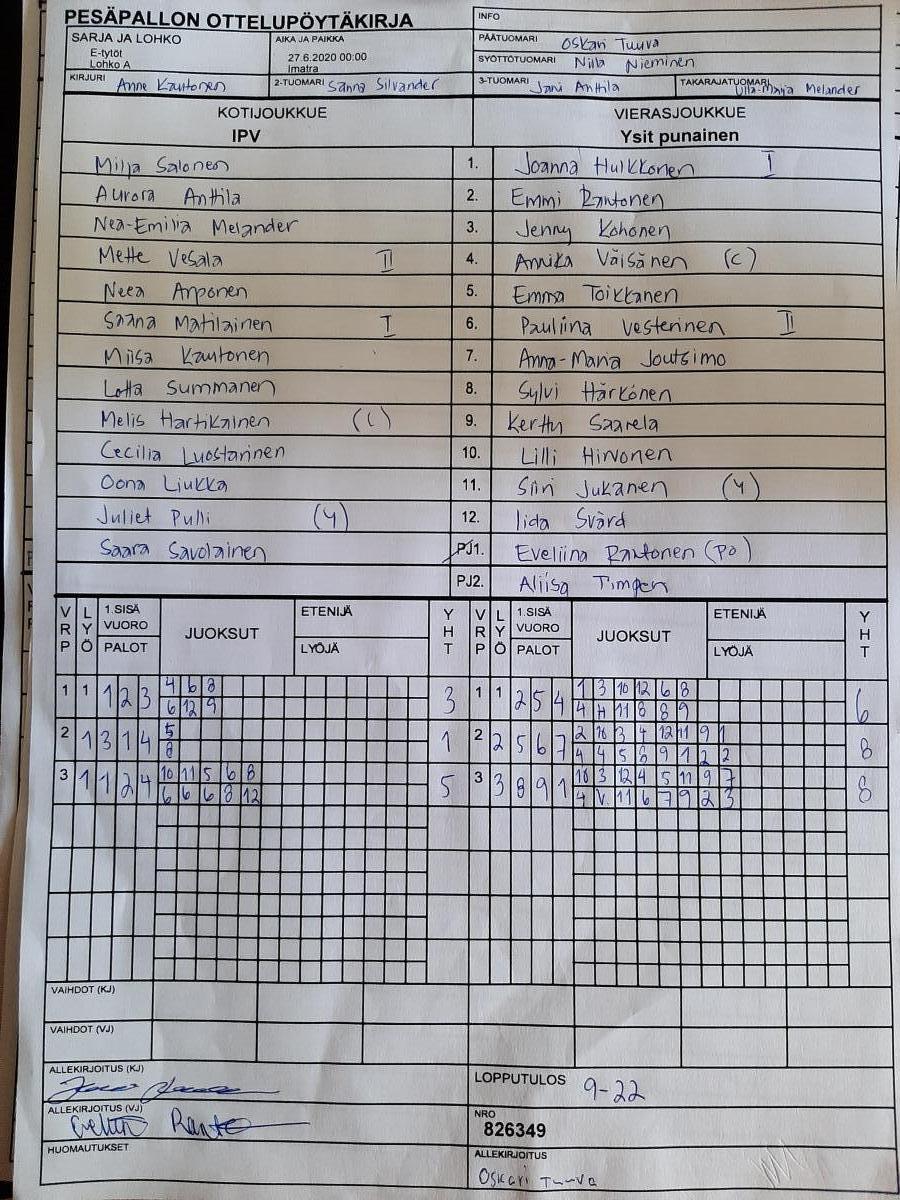 PESÄPALLON OTTELUPÖYTÄKIRJA
INFO
SARJA JA LOHKO
E-tytöt
Lohko A
AIKA JA PAIKKA
27.6.2020 00:00
Imatra
PÄÄTUOMARI Oskari Tuuva
SYÖTTÖTUOMARI Niila Nieminen
KIRJURI Anne Kautonen
2-TUOMARI Sanna Silvander
3-TUOMARI Jani Anttila
TAKARAJATUOMARI Ulla-Maija Melander
KOTIJOUKKUE
IPV
VIERASJOUKKUE
Ysit punainen
Milja Salonen 1. Joanna Hulkkonen I
Aurora Anttila 2. Emmi Rantonen
Nea-Emilia Melander 3. Jenny Kohonen
Mette Vesala II 4. Annika Väisänen (C)
Neea Anponen 5. Emma Toikkanen
Saana Matilainen I 6. Pauliina Vesterinen II
Miisa Kautonen 7. Anna-Maria Joutsimo
Lotta Summanen 8. Sylvi Härkönen
Melis Hartikainen (C) 9. Kerttu Saarela
Cecilia Luostarinen 10. Lilli Hirvonen
Oona Liukka 11. Siiri Jukanen (4)
Juliet Pulli (4) 12. Iida Svärd
Saara Savolainen PJ1. Eveliina Rantonen (PO)
PJ2. Aliisa Timpen
VRP LYÖ 1.SISÄ VUORO PALOT JUOKSUT ETENIJÄ LYÖJÄ YHT VRP LYÖ 1.SISÄ VUORO PALOT JUOKSUT ETENIJÄ LYÖJÄ YHT
1 1 1 2 3 4 6 8 3 1 1 2 5 4 1 3 10 12 6 8 6
6 12 9 4 H 11 8 8 9
2 1 3 1 4 5 1 2 2 5 6 7 2 10 3 4 12 11 9 1 8
8 4 4 5 6 9 1 2 2
3 1 1 2 4 10 11 5 6 8 5 3 3 8 9 1 10 3 12 4 5 11 9 7 8
6 6 6 8 12 4 V 11 6 7 9 2 3
VAIHDOT (KJ)
VAIHDOT (VJ)
ALLEKIRJOITUS (KJ)
LOPPUTULOS 9-22
ALLEKIRJOITUS (VJ)
NRO
826349
HUOMAUTUKSET
ALLEKIRJOITUS
Oskari Tuuva